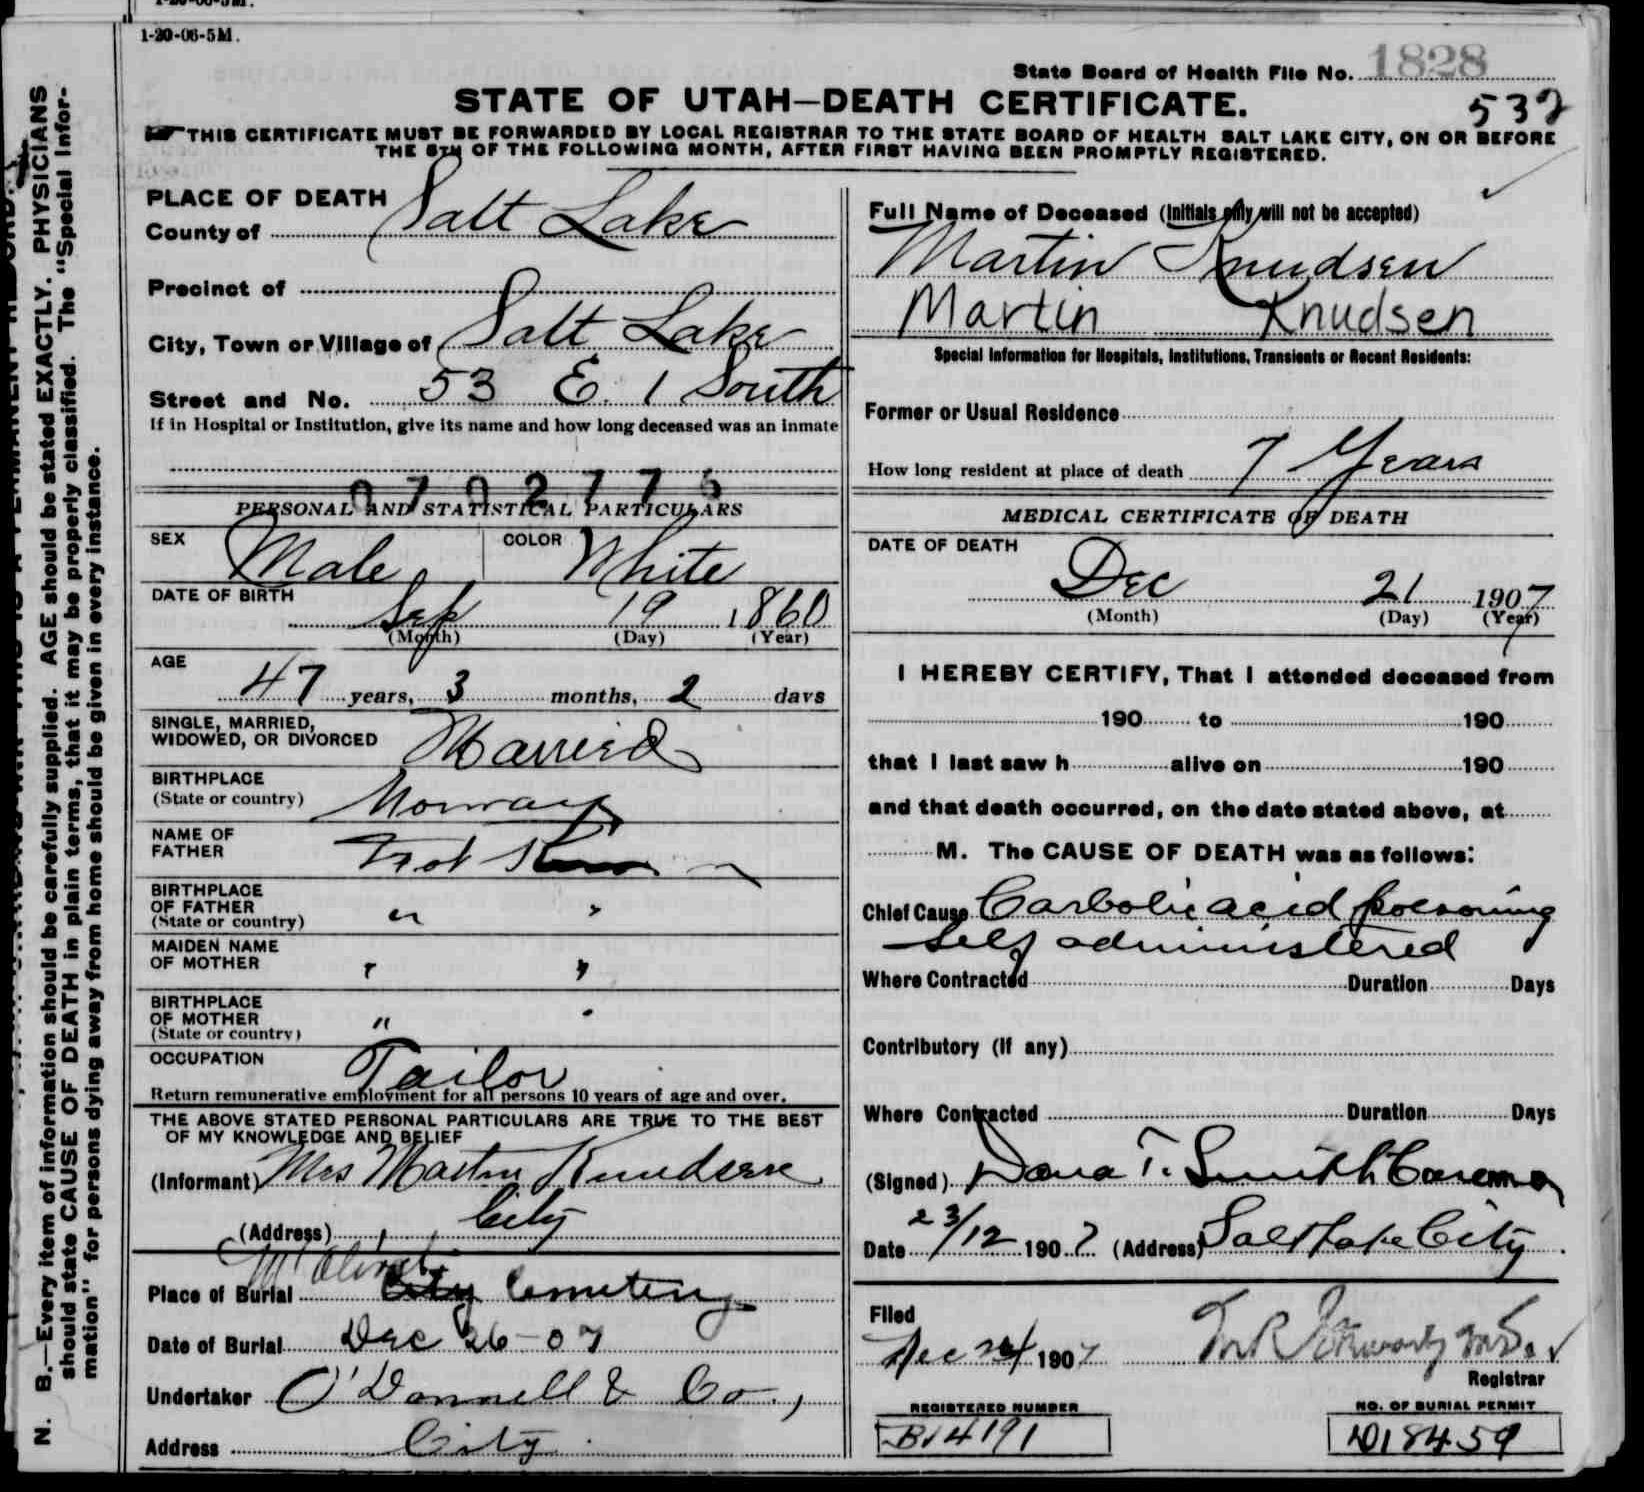 1-20-06-5M.
State Board of Health File No. 1828
STATE OF UTAH—DEATH CERTIFICATE.
532
THIS CERTIFICATE MUST BE FORWARDED BY LOCAL REGISTRAR TO THE STATE BOARD OF HEALTH SALT LAKE CITY, ON OR BEFORE
THE 5TH OF THE FOLLOWING MONTH, AFTER FIRST HAVING BEEN PROMPTLY REGISTERED.
PLACE OF DEATH
County of Salt Lake
Precinct of
City, Town or Village of Salt Lake
Street and No. 53 E. 1 South
If in Hospital or Institution, give its name and how long deceased was an inmate
PERSONAL AND STATISTICAL PARTICULARS
SEX Male COLOR White
DATE OF BIRTH Sep 19 1860
(Month) (Day) (Year)
AGE
47 years, 3 months, 2 days
SINGLE, MARRIED,
WIDOWED, OR DIVORCED Married
BIRTHPLACE
(State or country) Norway
NAME OF
FATHER Not
BIRTHPLACE
OF FATHER
(State or country) " "
MAIDEN NAME
OF MOTHER " "
BIRTHPLACE
OF MOTHER
(State or country) " "
OCCUPATION Tailor
Return remunerative employment for all persons 10 years of age and over.
THE ABOVE STATED PERSONAL PARTICULARS ARE TRUE TO THE BEST
OF MY KNOWLEDGE AND BELIEF
(Informant) Mrs Martin Knudsen
(Address) City
Mt Olivet
Place of Burial City Cemetery
Date of Burial Dec 26-07
Undertaker O'Donnell & Co.,
Address City
Full Name of Deceased (Initials only will not be accepted)
Martin Knudsen
Martin Knudsen
Special Information for Hospitals, Institutions, Transients or Recent Residents:
Former or Usual Residence
How long resident at place of death 7 Years
MEDICAL CERTIFICATE OF DEATH
DATE OF DEATH
Dec 21 1907
(Month) (Day) (Year)
I HEREBY CERTIFY, That I attended deceased from
190 to 190
that I last saw h alive on 190
and that death occurred, on the date stated above, at
M. The CAUSE OF DEATH was as follows:
Chief Cause Carbolic acid poisoning
Self administered
Where Contracted Duration Days
Contributory (if any)
Where Contracted Duration Days
(Signed) Dana T. Smith Coroner
Date 23/12 1907 (Address) Salt Lake City
Filed
Dec 24 1907
Registrar
REGISTERED NUMBER
B 4191
NO. OF BURIAL PERMIT
D18459
N. B.—Every item of information should be carefully supplied. AGE should be stated EXACTLY. PHYSICIANS
should state CAUSE OF DEATH in plain terms, that it may be properly classified. The "Special Infor-
mation" for persons dying away from home should be given in every instance.